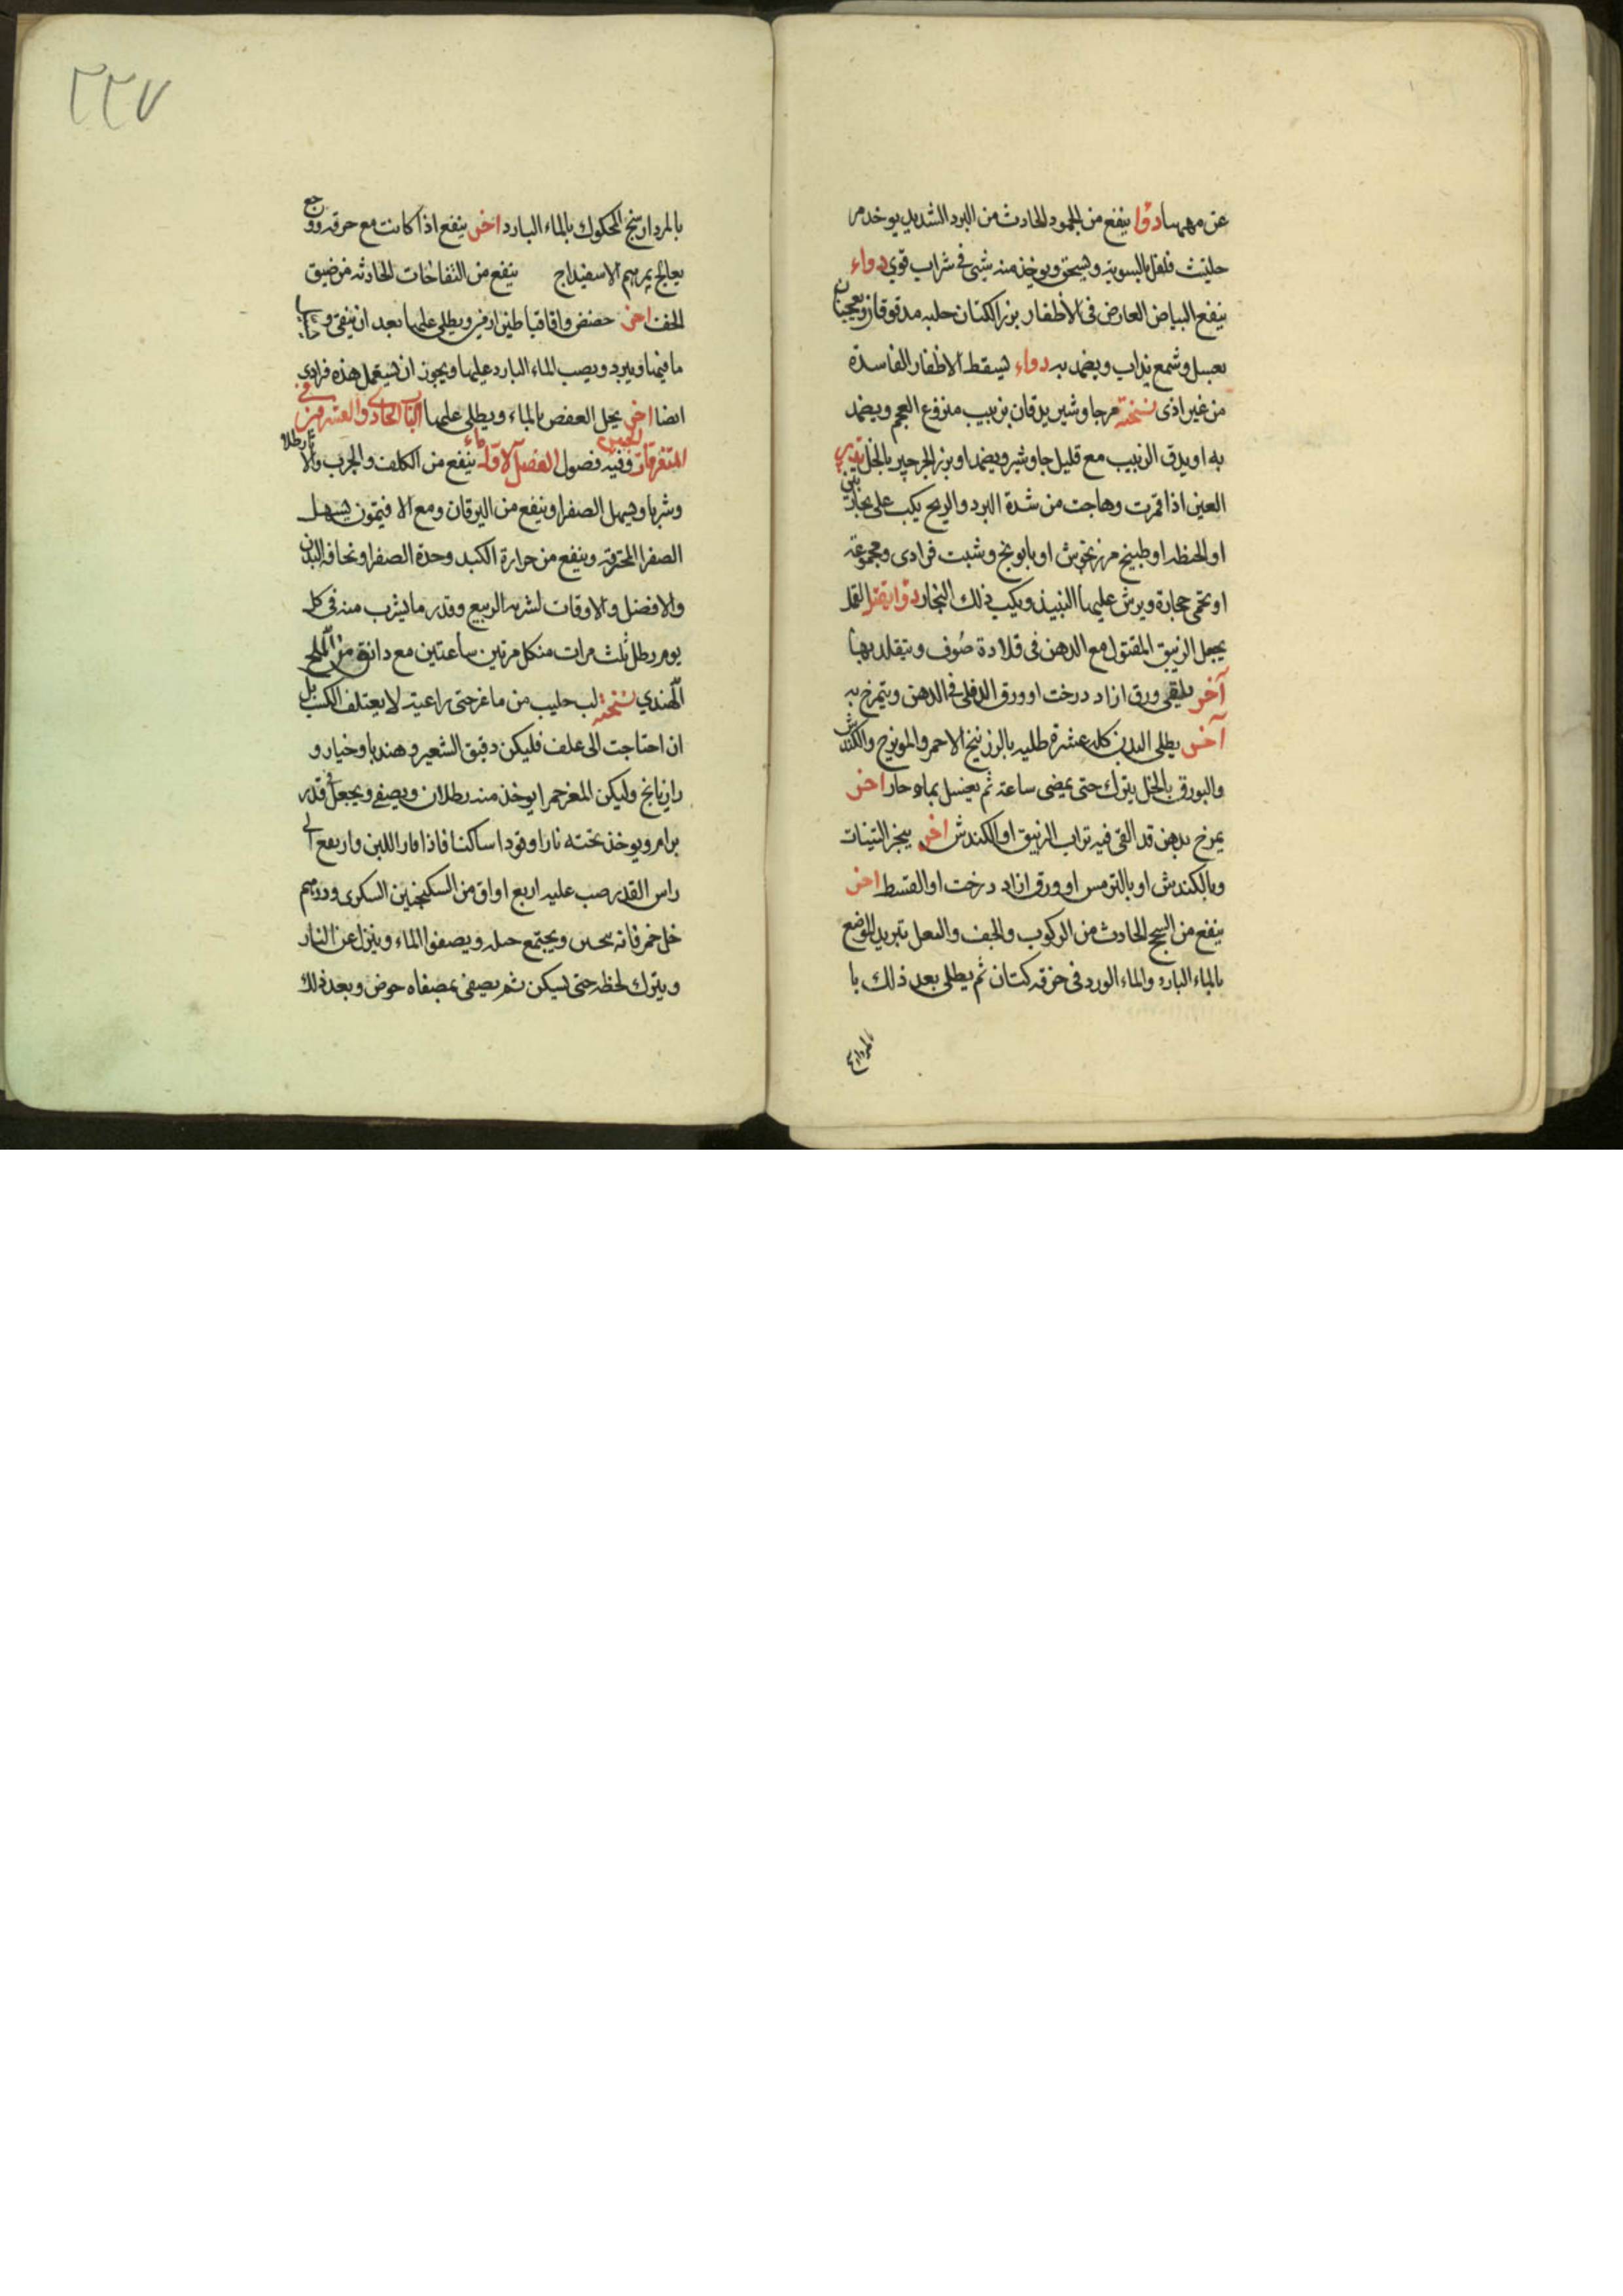 عن مهمها دوا ينفع من الجمود الحادث من البرد الشديد يوخذ مر
حلتيث فلفل بالسوية ويسحق ويوخذ منه شئ في شراب قوي دواء
ينفع البياض العارض في الأظفار بزر الكتان حلبه مدقوقان ويعجنان
بعسل وشمع يذاب ويضمد به دواء يسقط الاظفار الفاسدة
من غير اذى نسخته مر جاوشير يدقان بزبيب منزوع العجم ويضمد
به او يدق الزبيب مع قليل جاوشير ويضمد او بزر الجرجير بالخل تدبير
العين اذا قمرت وهاجت من شدة البرد والريح يكب على بخار تبن
او الحنطه او طبيخ مرزنجوش او بابونج وشبت فرادى ومجموعة
او تحمى حجارة ويرش عليها النبيذ ويكب ذلك البخار دوا يقتل القمل
يجعل الزيبق المقتول مع الدهن في قلادة صُوف ويتقلد بها
آخر يلقى ورق ازاد درخت او ورق الدفلى في الدهن ويتمرخ به
آخر يطلى البدن كله عشرة طليه بالزرنيخ الاحمر والمويزج والكندش
والبورق بالخل يترك حتى يمضى ساعة ثم يغسل بماء حار اخر
يمرخ بدهن قد القى فيه تراب الزيبق او الكندش اخر يبخر الثياب
وبالكندش او بالترمس او ورق ازاد درخت او القسط اخر
ينفع من السحج الحادث من الركوب والخف والنعل تبريد الموضع
بالماء البارد والماء الورد في خرقه كتان ثم يطلى بعد ذلك با
٢٢٧
بالمردارسنج المحكوك بالماء البارد اخر ينفع اذا كانت مع حرقه ووجع
يعالج بمرهم الاسفيداج ينفع من النفاخات الحادثه من ضيق
الخف اخر حضض واقاقيا طين ارمني ويطلى عليها بعد ان ينقى
ما فيها ويبرد ويصب الماء البارد عليها ويجوز ان يستعمل هذه فرادى
ايضا اخر يحل العفص بالماء ويطلى عليها الباب الحادى والعشرون في
المتفرقات وفيه فصول الفصل الاول ماء الجبن ينفع من الكلف والجرب والاثار طلا
وشربا ويسهل الصفرا وينفع من اليرقان ومع الافيتمون يسهل
الصفرا المحترقة وينفع من حرارة الكبد وحدة الصفرا ونحافه البدن
والافضل والاوقات لشربه الربيع وقدر ما يشرب منه في كل
يوم رطل ثلث مرات من كل مرتين ساعتين مع دانق من الملح
الهندي نسخته لب حليب من ماعز حتى راعية لا يعتلف الكسب بل
ان احتاجت الى علف فليكن دقيق الشعير وهندبا وخيار و
رازيانج وليكن المعز حمرا يوخذ منه رطلان ويصفى ويجعل في قدر
برام ويوخذ تحته نارا وقودا ساكنا فاذا فار اللبن وارتفع الى
راس القدر صب عليه اربع اواق من السكنجبين السكرى ودرهم
خل خمر فانه ويجتمع ويصفوا الماء وينزل عن النار
ويترك لحظه حتى يسكن ثم يصفى بمصفاه خوص وبعد ذلك